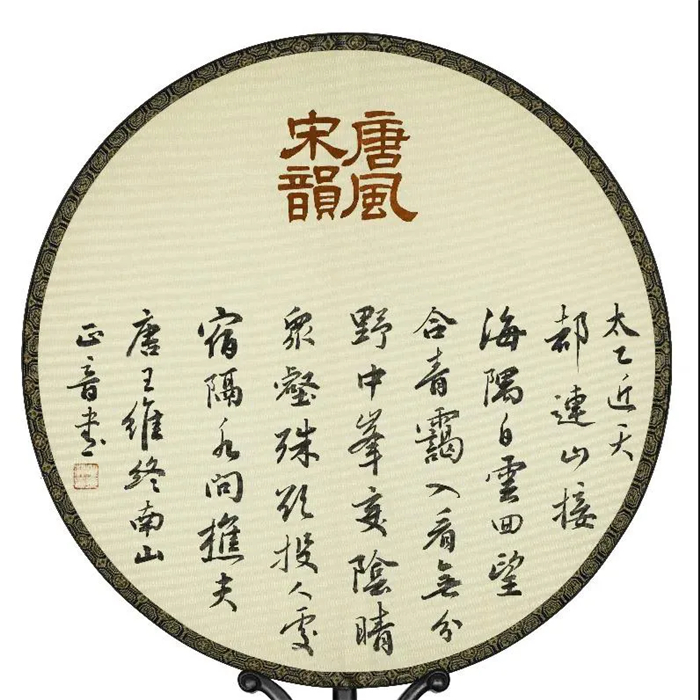 唐風
宋韻
太乙近天
都連山接
海隅白雲回望
合青靄入看無分
野中峯變陰晴
衆壑殊欲投人處
宿隔水問樵夫
唐王維終南山
正音書